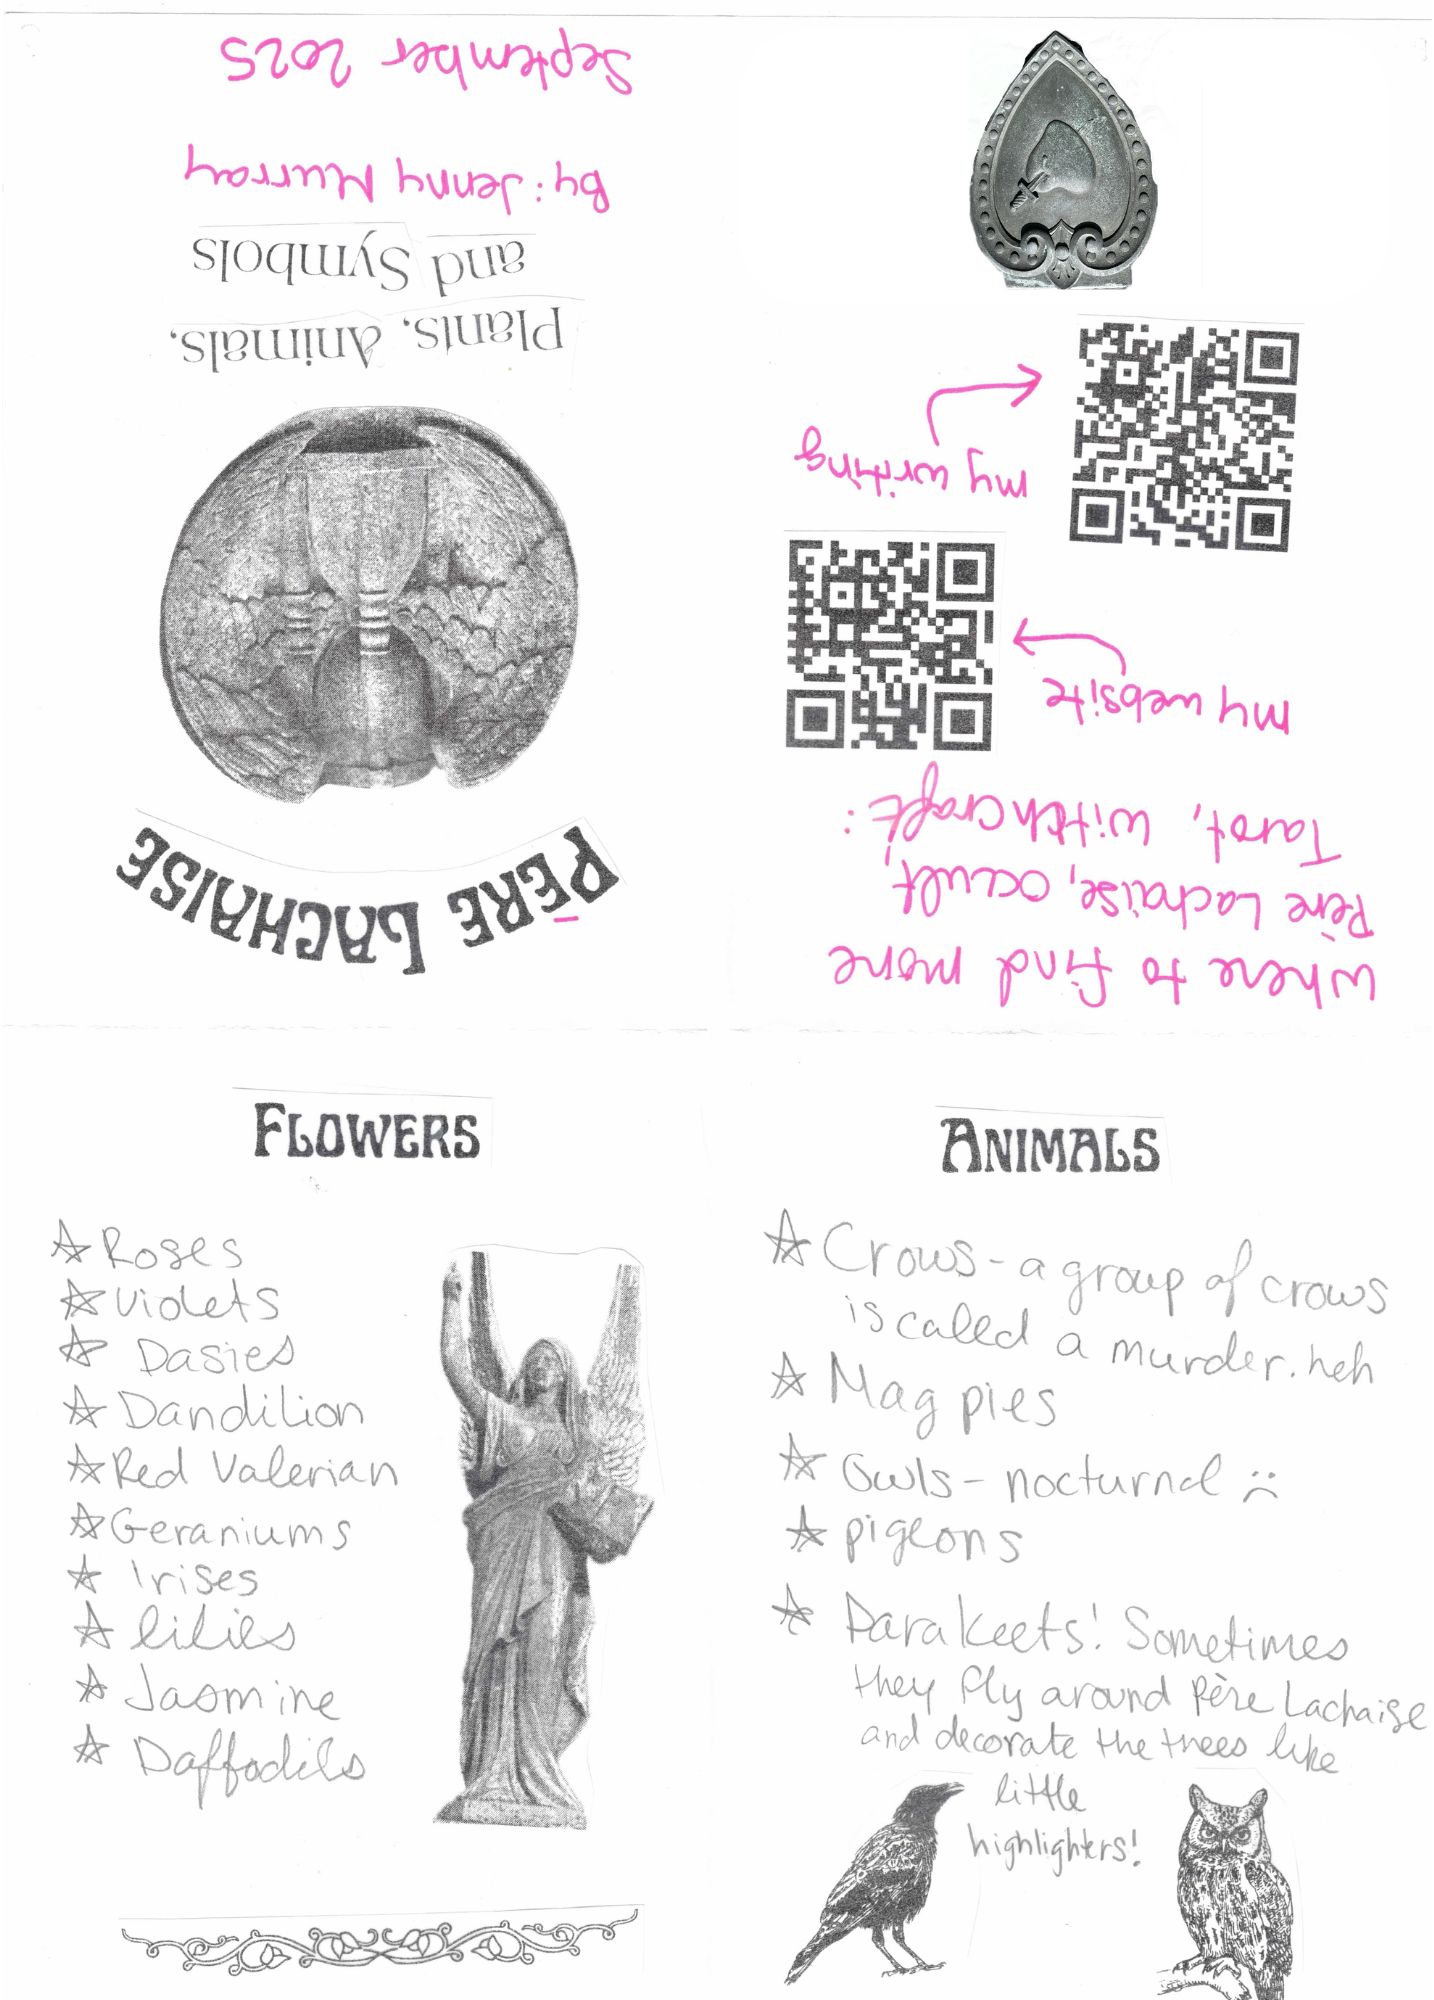 PÈRE LACHAISE
Plants, Animals,
and Symbols
By: Jenny Murray
September 2025
Where to find more
Père Lachaise, occult,
Tarot, witthcraft:
my website
my writing
FLOWERS
Roses
Violets
Dasies
Dandilion
Red Valerian
Geraniums
Irises
lilies
Jasmine
Daffodils
ANIMALS
Crows - a group of crows
is called a murder. heh
Magpies
Owls - nocturnal :(
pigeons
Parakeets! Sometimes
they fly around Père Lachaise
and decorate the trees like
little
highlighters!